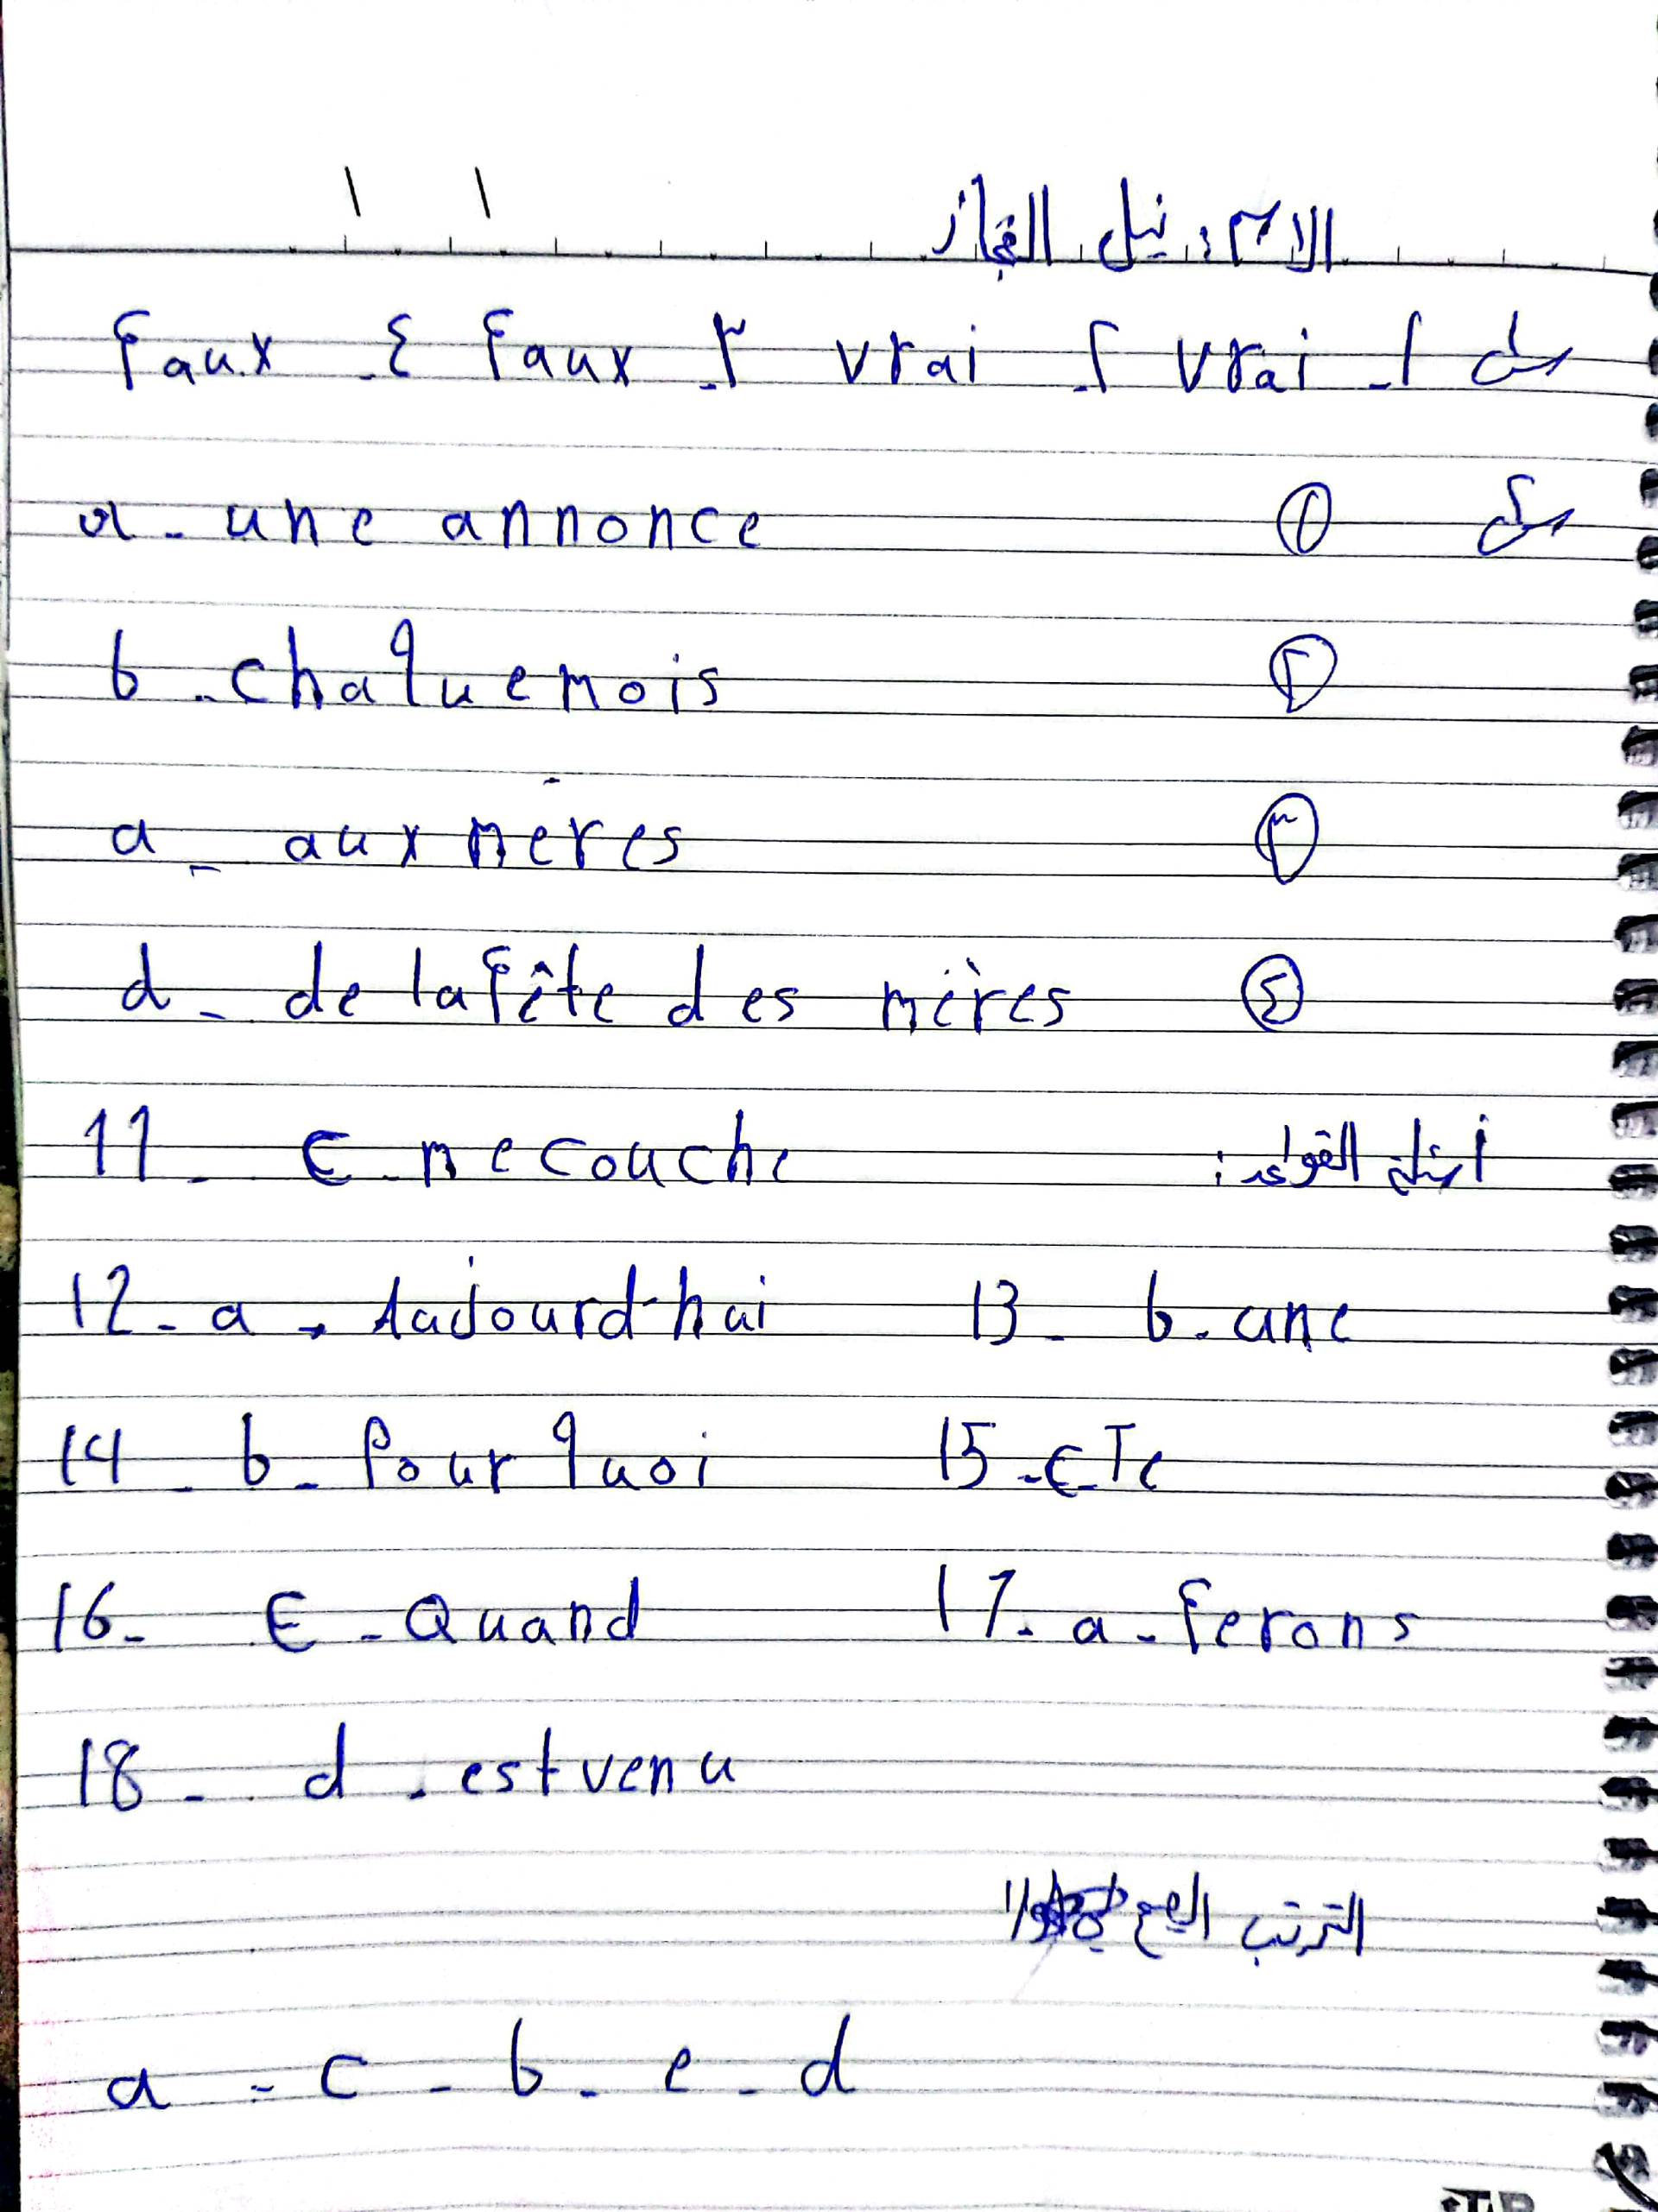 الاسم: نيل القجاز
س١ ١- vrai ٢- vrai ٣- faux ٤- faux
س٢ ① a - une annonce
② b - chaquemois
③ a - aux mères
④ d - de la fête des mères
أسئلة القواعد:
11 - c - me couche
12 - a - Aujourd'hui 13 - b - une
14 - b - Pourquoi 15 - c - Te
16 - c - Quand 17 - a - ferons
18 - d - est venu
الترتيب الصحيح
a - c - b - e - d